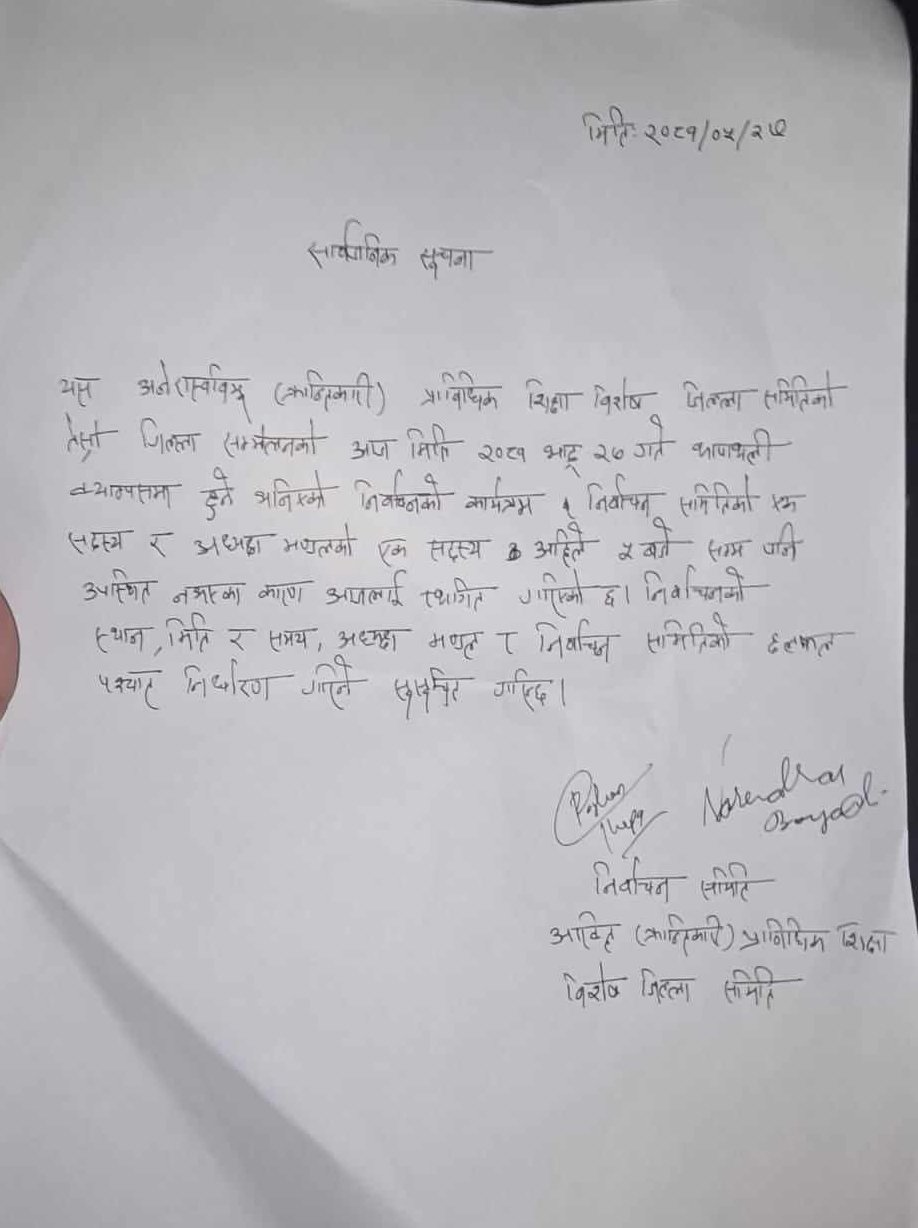 मिति: २०८१/०५/२७
सार्वजनिक सूचना
यस अनेरास्ववियू (क्रान्तिकारी) प्राविधिक शिक्षा विशेष जिल्ला समितिको
तेस्रो जिल्ला सम्मेलनको आज मिति २०८१ भाद्र २७ गते थापाथली
क्याम्पसमा हुने भनिएको निर्वाचनको कार्यक्रम निर्वाचन समितिको एक
सदस्य र अध्यक्ष मण्डलको एक सदस्य अहिले ५ बजे सम्म पनि
उपस्थित नभएका कारण आजलाई स्थगित गरिएको छ। निर्वाचनको
स्थान, मिति र समय, अध्यक्ष मण्डल र निर्वाचन समितिको छलफल
पश्चात निर्धारण गरिने सुसूचित गरिन्छ।
Narendra
निर्वाचन समिति
(क्रान्तिकारी) प्राविधिक शिक्षा
विशेष जिल्ला समिति